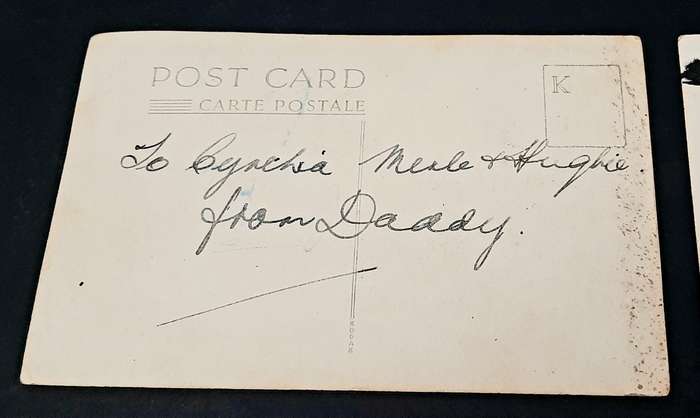 POST CARD
CARTE POSTALE
K
To Cynthia Merle & Hughie.
from Daddy.
KODAK